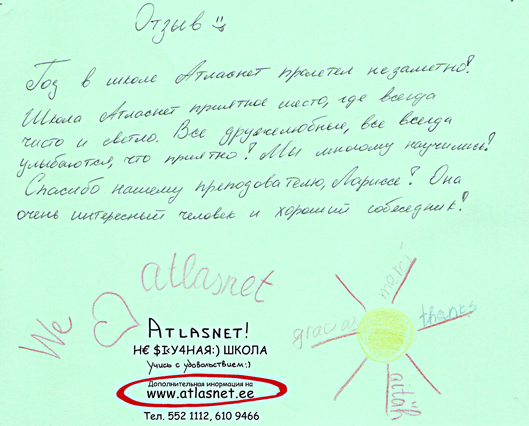 Отзыв
Год в школе Атласнет пролетел незаметно!
Школа Атласнет приятное место, где всегда
чисто и светло. Все дружелюбные, все всегда
улыбаются, что приятно! Мы многому научились!
Спасибо нашему преподователю, Ларисе! Она
очень интересный человек и хороший собеседник!
We ♡ atlasnet
merci
gracias
thanks
aitäh
ATLASNET!
Н€ $I·У4НАЯ:) ШКОЛА
Учись с удовольствием:)
Дополнительная инормация на
www.atlasnet.ee
Тел. 552 1112, 610 9466